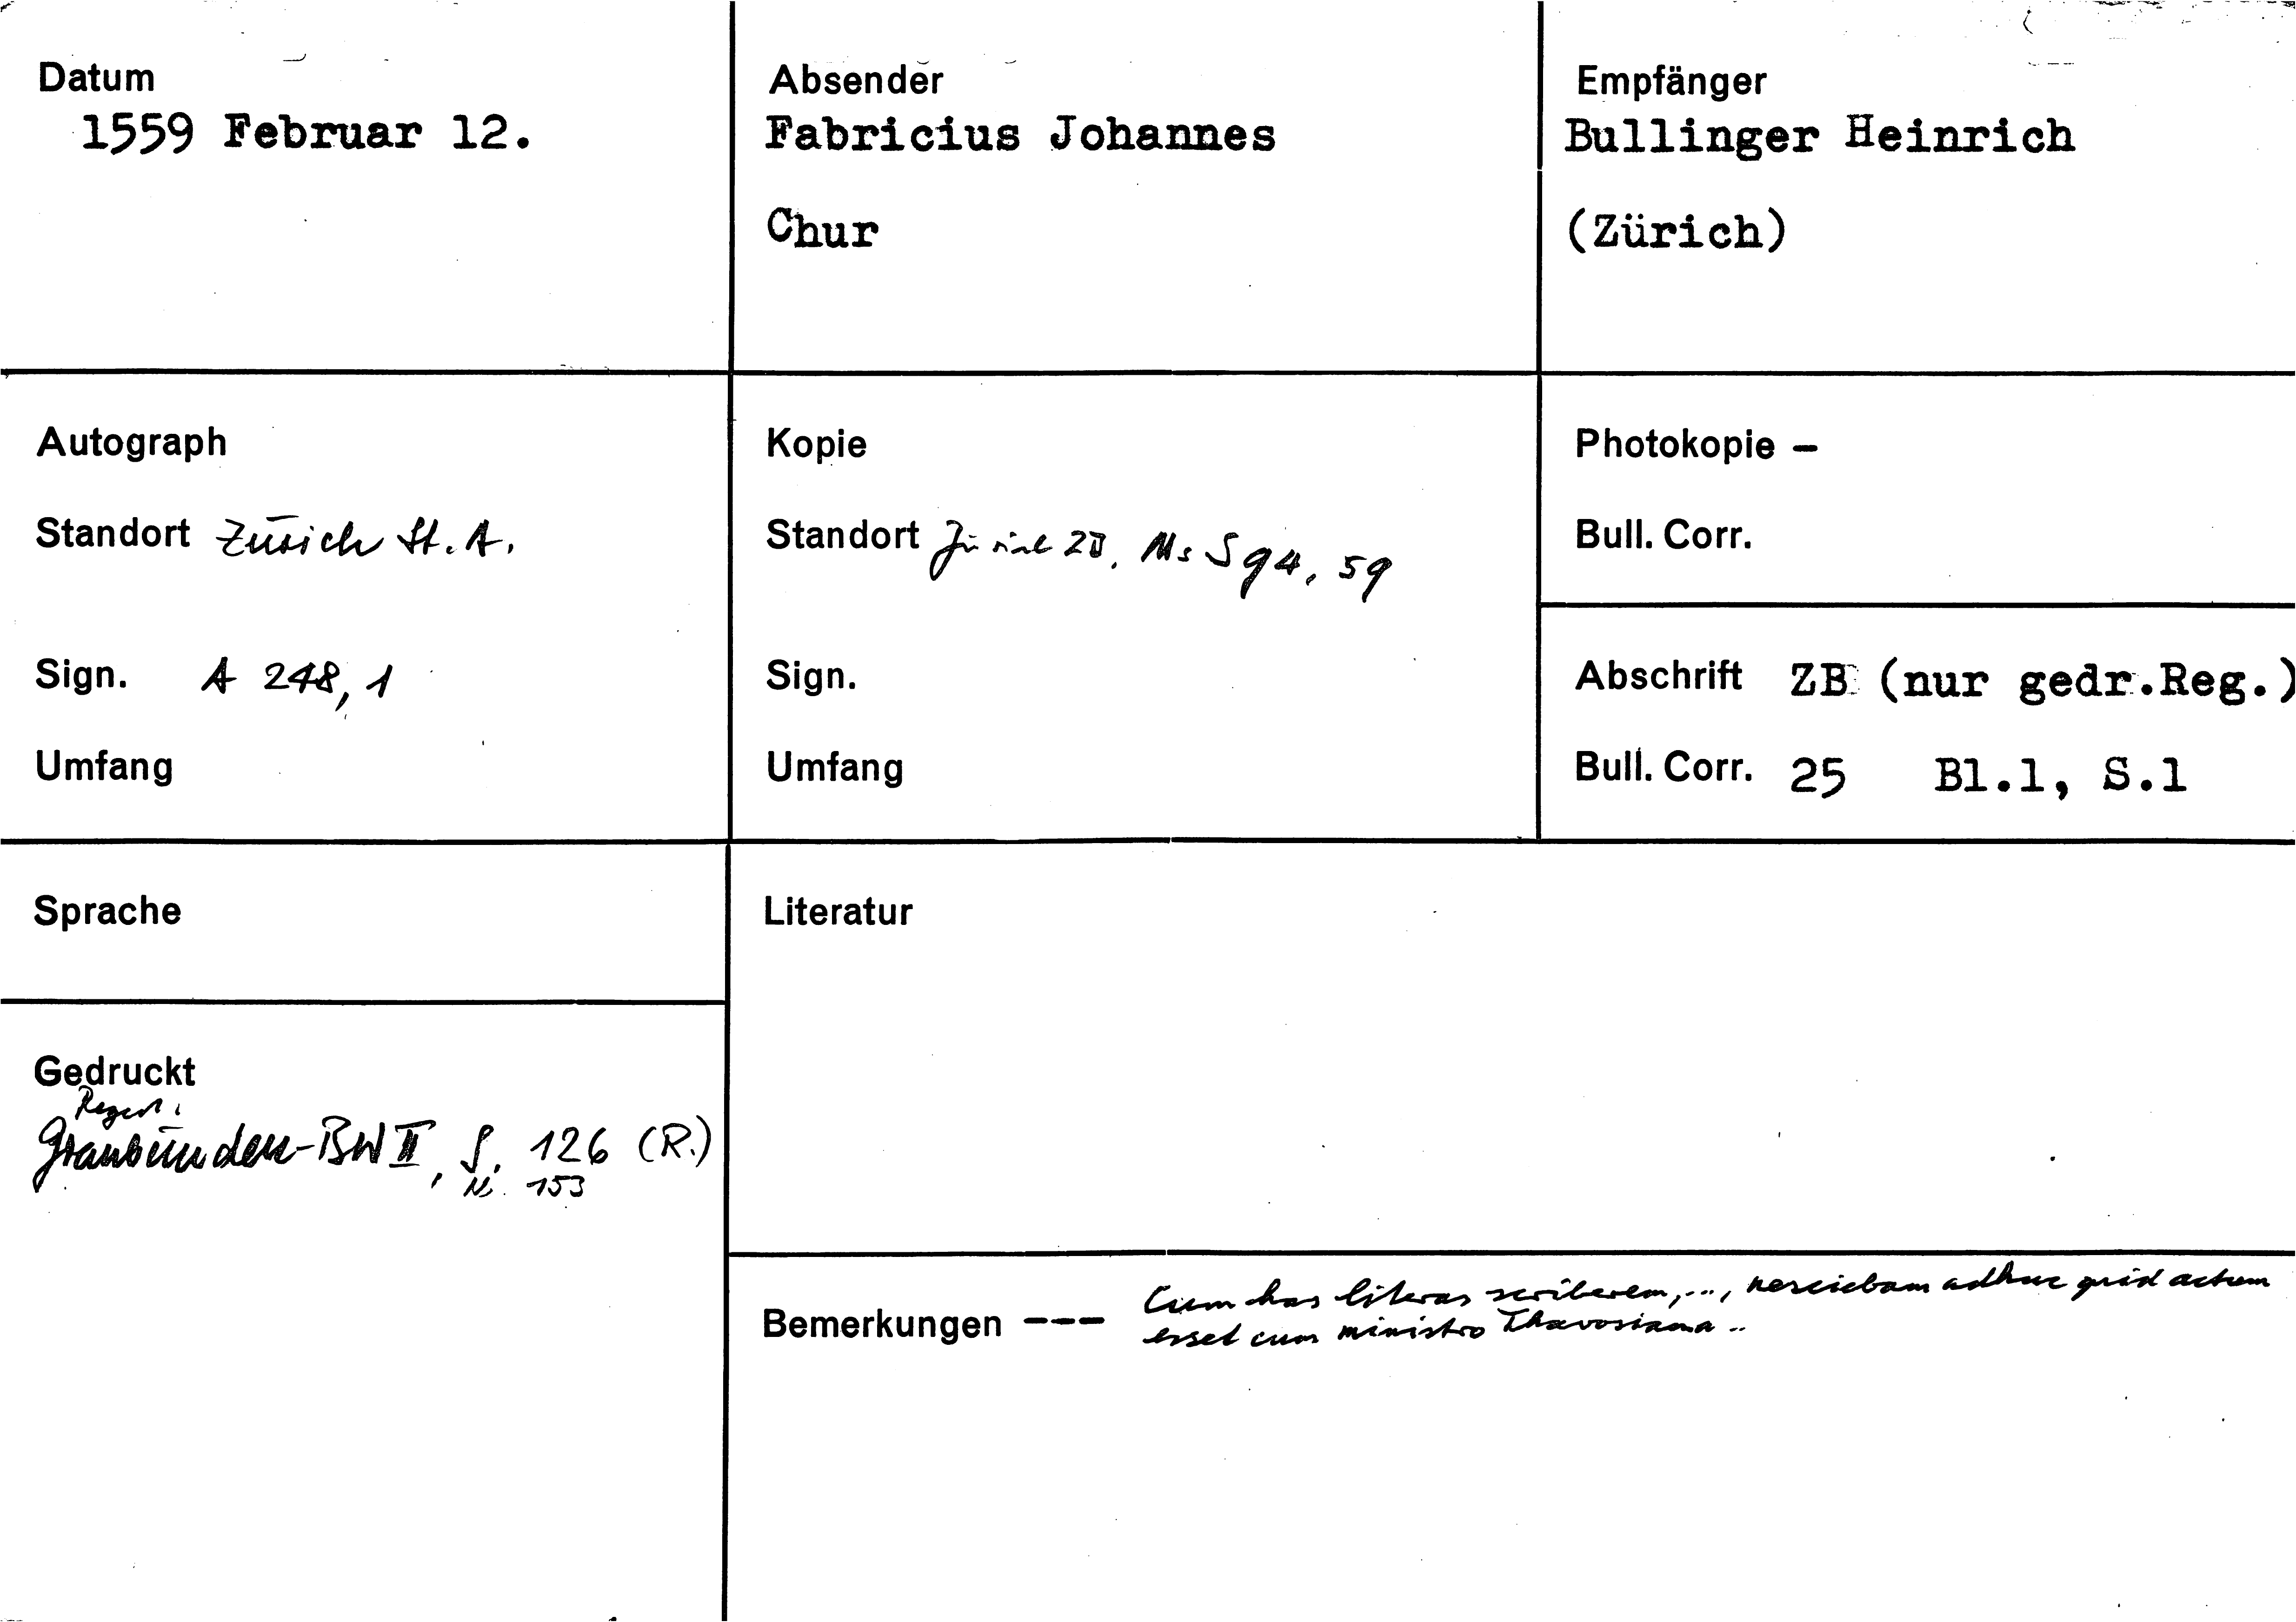 Datum
1559 Februar 12.
Absender
Fabricius Johannes
Chur
Empfänger
Bullinger Heinrich
(Zürich)
Autograph
Standort Zürich St.A.
Sign. A 248, 1
Umfang
Kopie
Standort Zürich ZB, Ms S 94, 59
Sign.
Umfang
Photokopie –
Bull. Corr.
Abschrift ZB (nur gedr.Reg.)
Bull. Corr. 25 Bl.1, S.1
Sprache
Gedruckt
Regest:
Graubünden-BW II, S. 126 (R.)
N. 153
Literatur
Bemerkungen --- Cum has literas scriberem,..., nesciebam adhuc quid actum
esset cum ministro Thavosiana ..